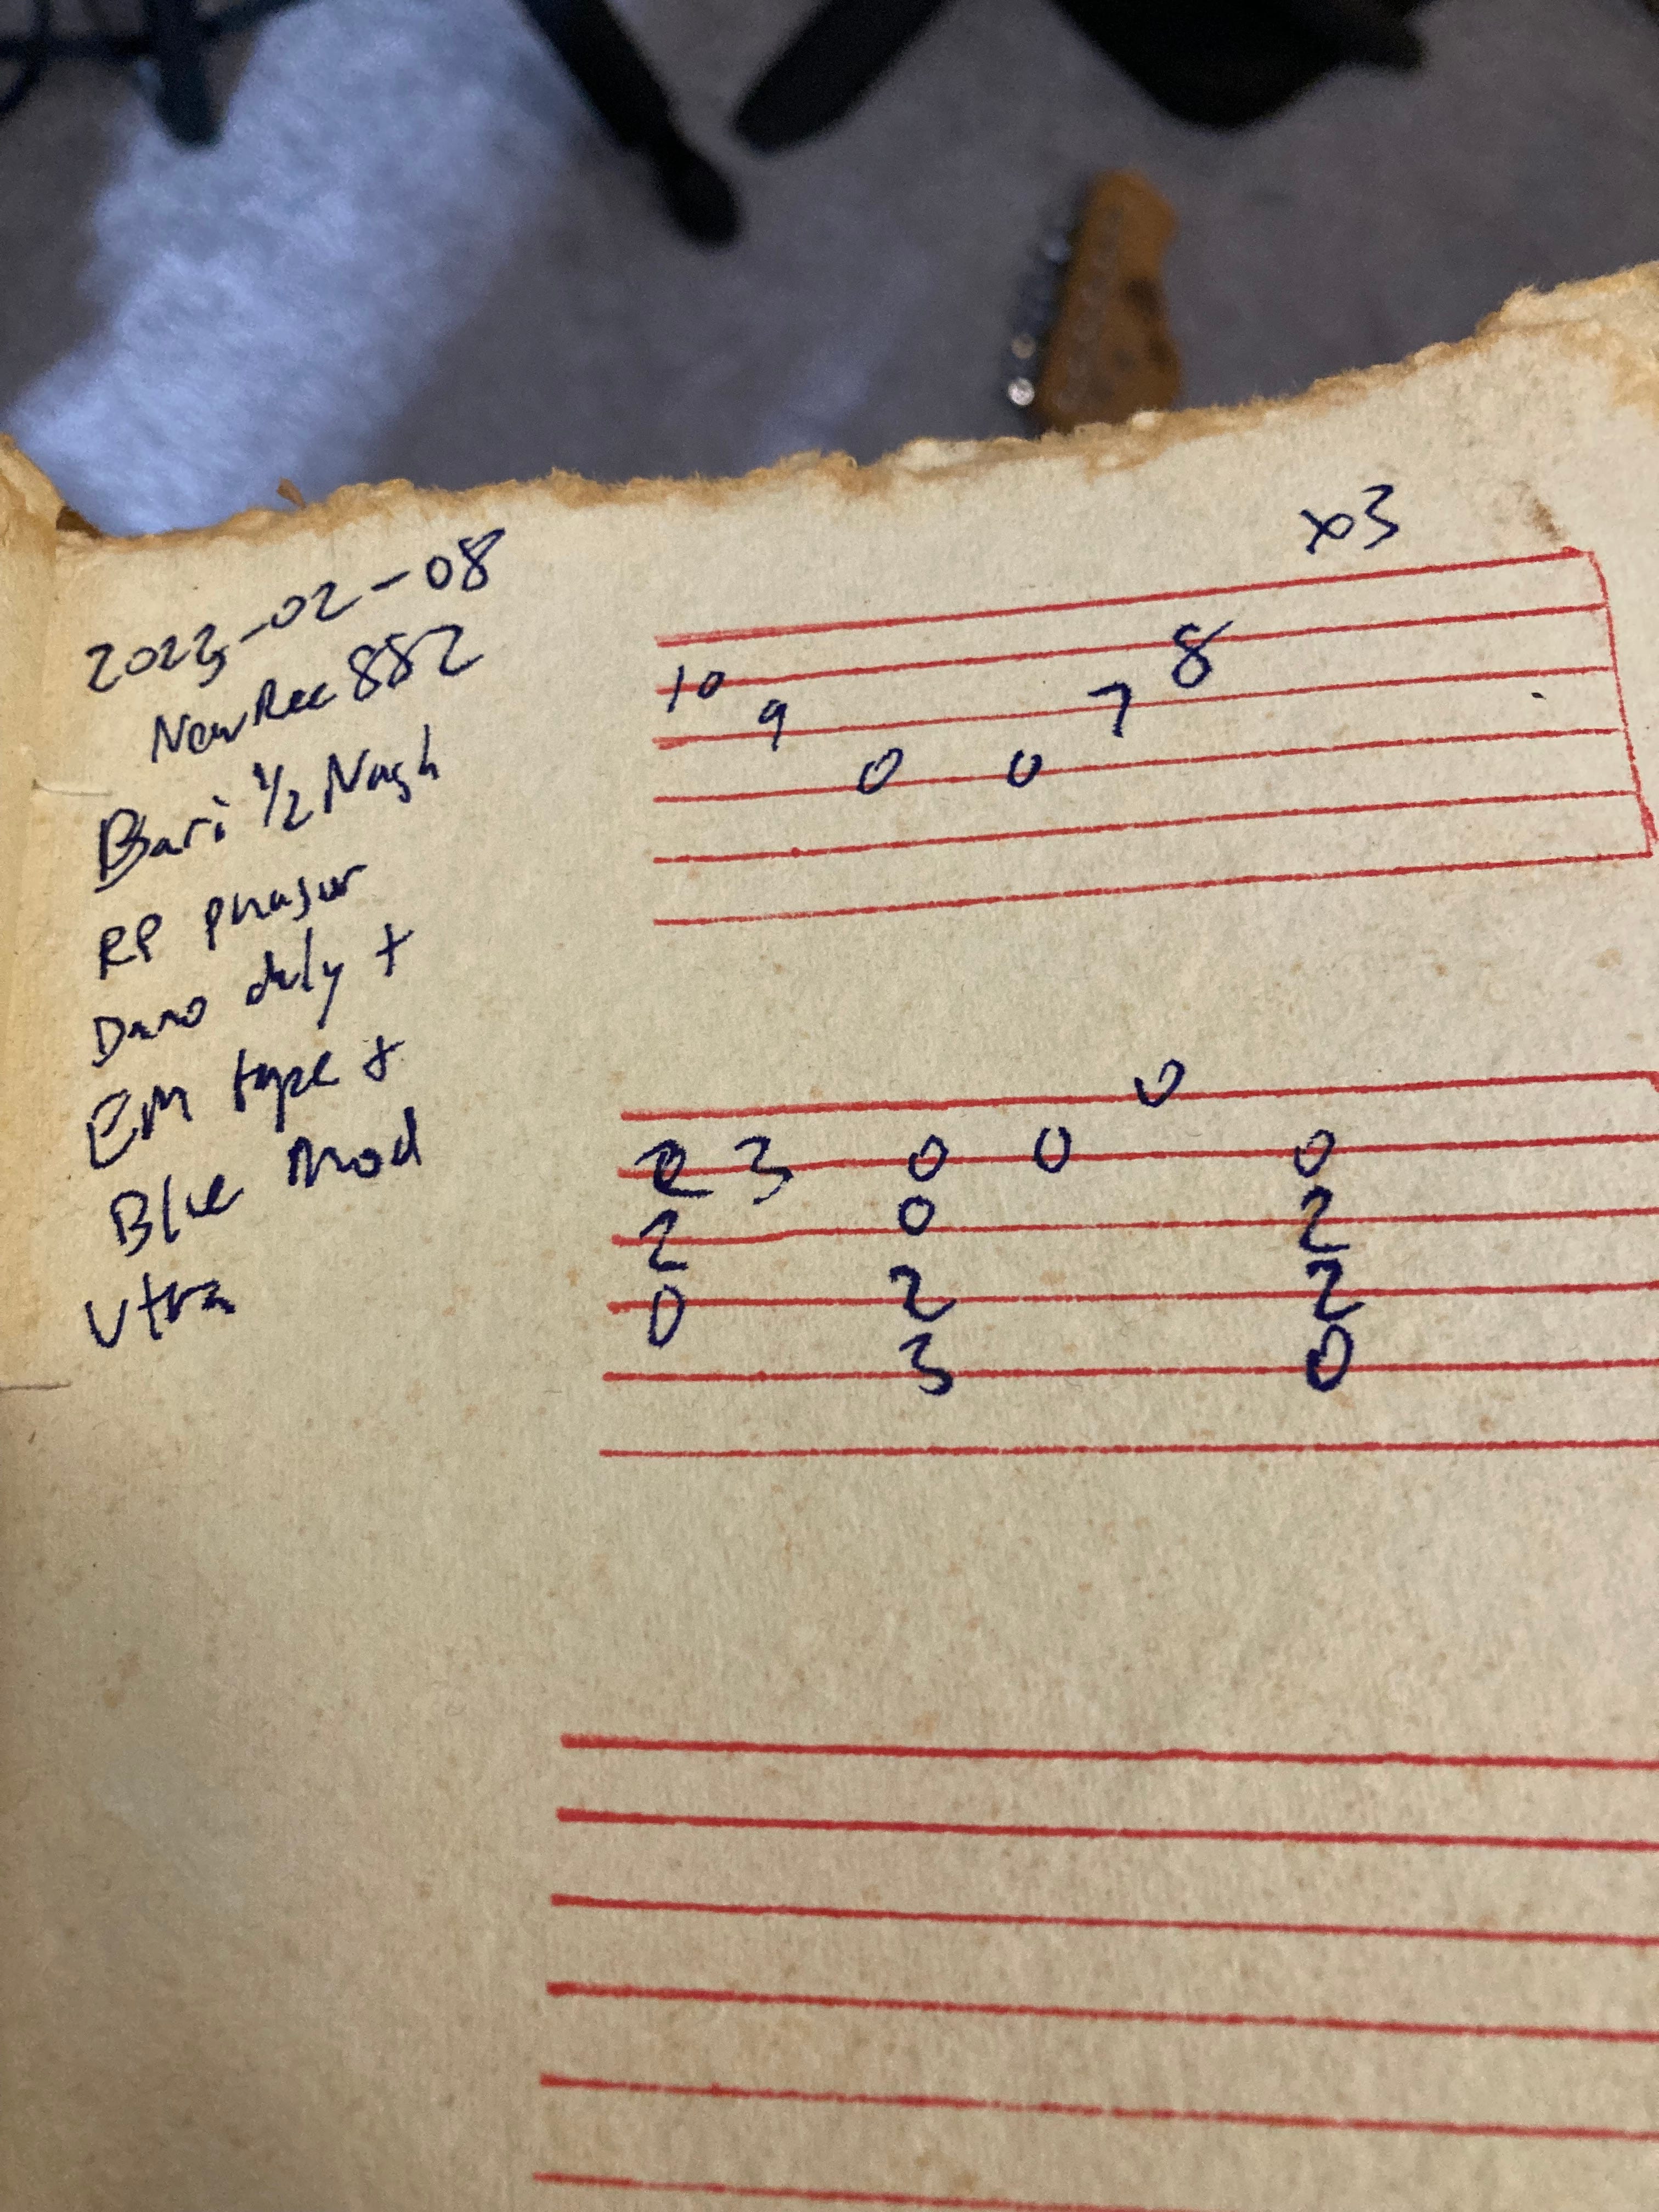 2023-02-08
NewRec 882
Bari 1/2 Nash
RP phasur
Dano dely +
EM tape +
Blue Mod
Vtra
x3
10 9 0 0 7 8
0
2 3 0 0 0
2 0 2
0 2 2
3 0